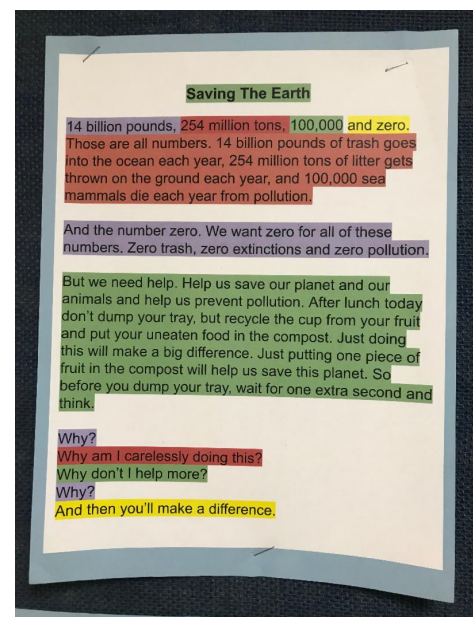 Saving The Earth
14 billion pounds, 254 million tons, 100,000 and zero.
Those are all numbers. 14 billion pounds of trash goes
into the ocean each year, 254 million tons of litter gets
thrown on the ground each year, and 100,000 sea
mammals die each year from pollution.
And the number zero. We want zero for all of these
numbers. Zero trash, zero extinctions and zero pollution.
But we need help. Help us save our planet and our
animals and help us prevent pollution. After lunch today
don't dump your tray, but recycle the cup from your fruit
and put your uneaten food in the compost. Just doing
this will make a big difference. Just putting one piece of
fruit in the compost will help us save this planet. So
before you dump your tray, wait for one extra second and
think.
Why?
Why am I carelessly doing this?
Why don't I help more?
Why?
And then you'll make a difference.